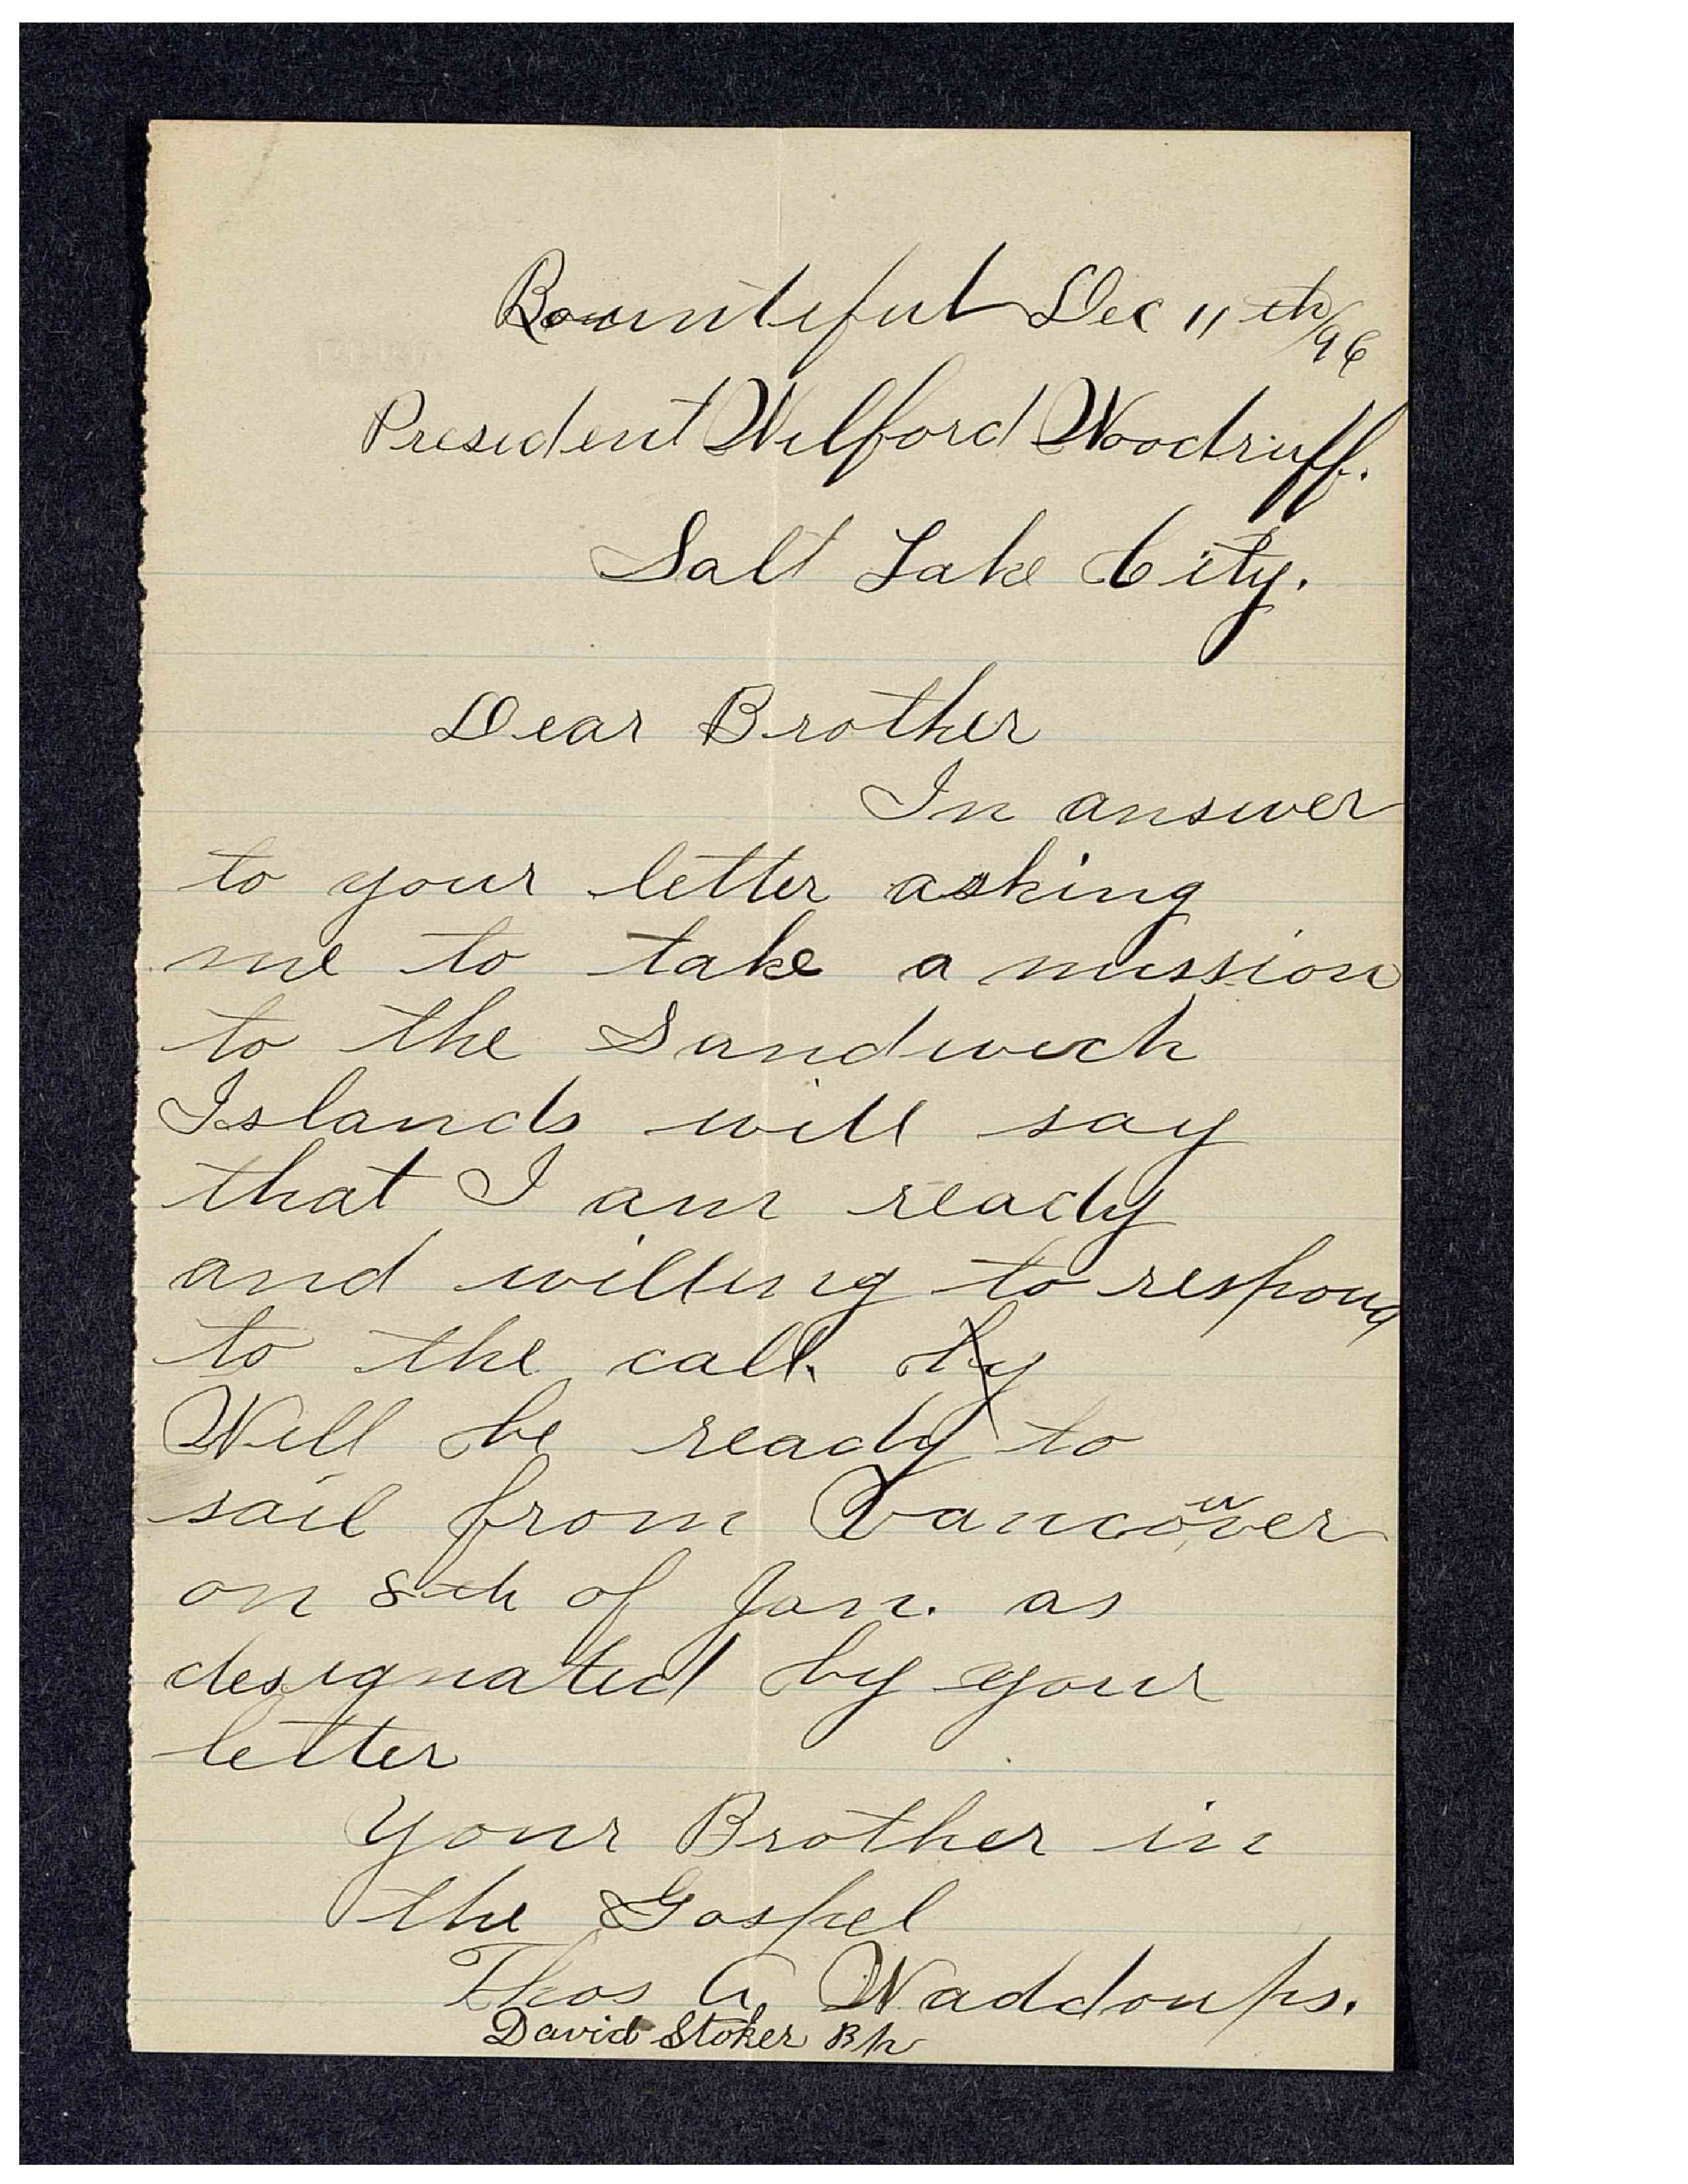 Bountiful Dec 11th/96
President Wilford Woodruff.
Salt Lake City.
Dear Brother
In answer
to your letter asking
me to take a mission
to the Sandwich
Islands will say
that I am ready
and willing to respond
to the call. by
Will be ready to
sail from Vancouver
on 8th of Jan. as
designated by your
letter
Your Brother in
the Gospel
Thos A. Waddoups.
David Stoker Bp